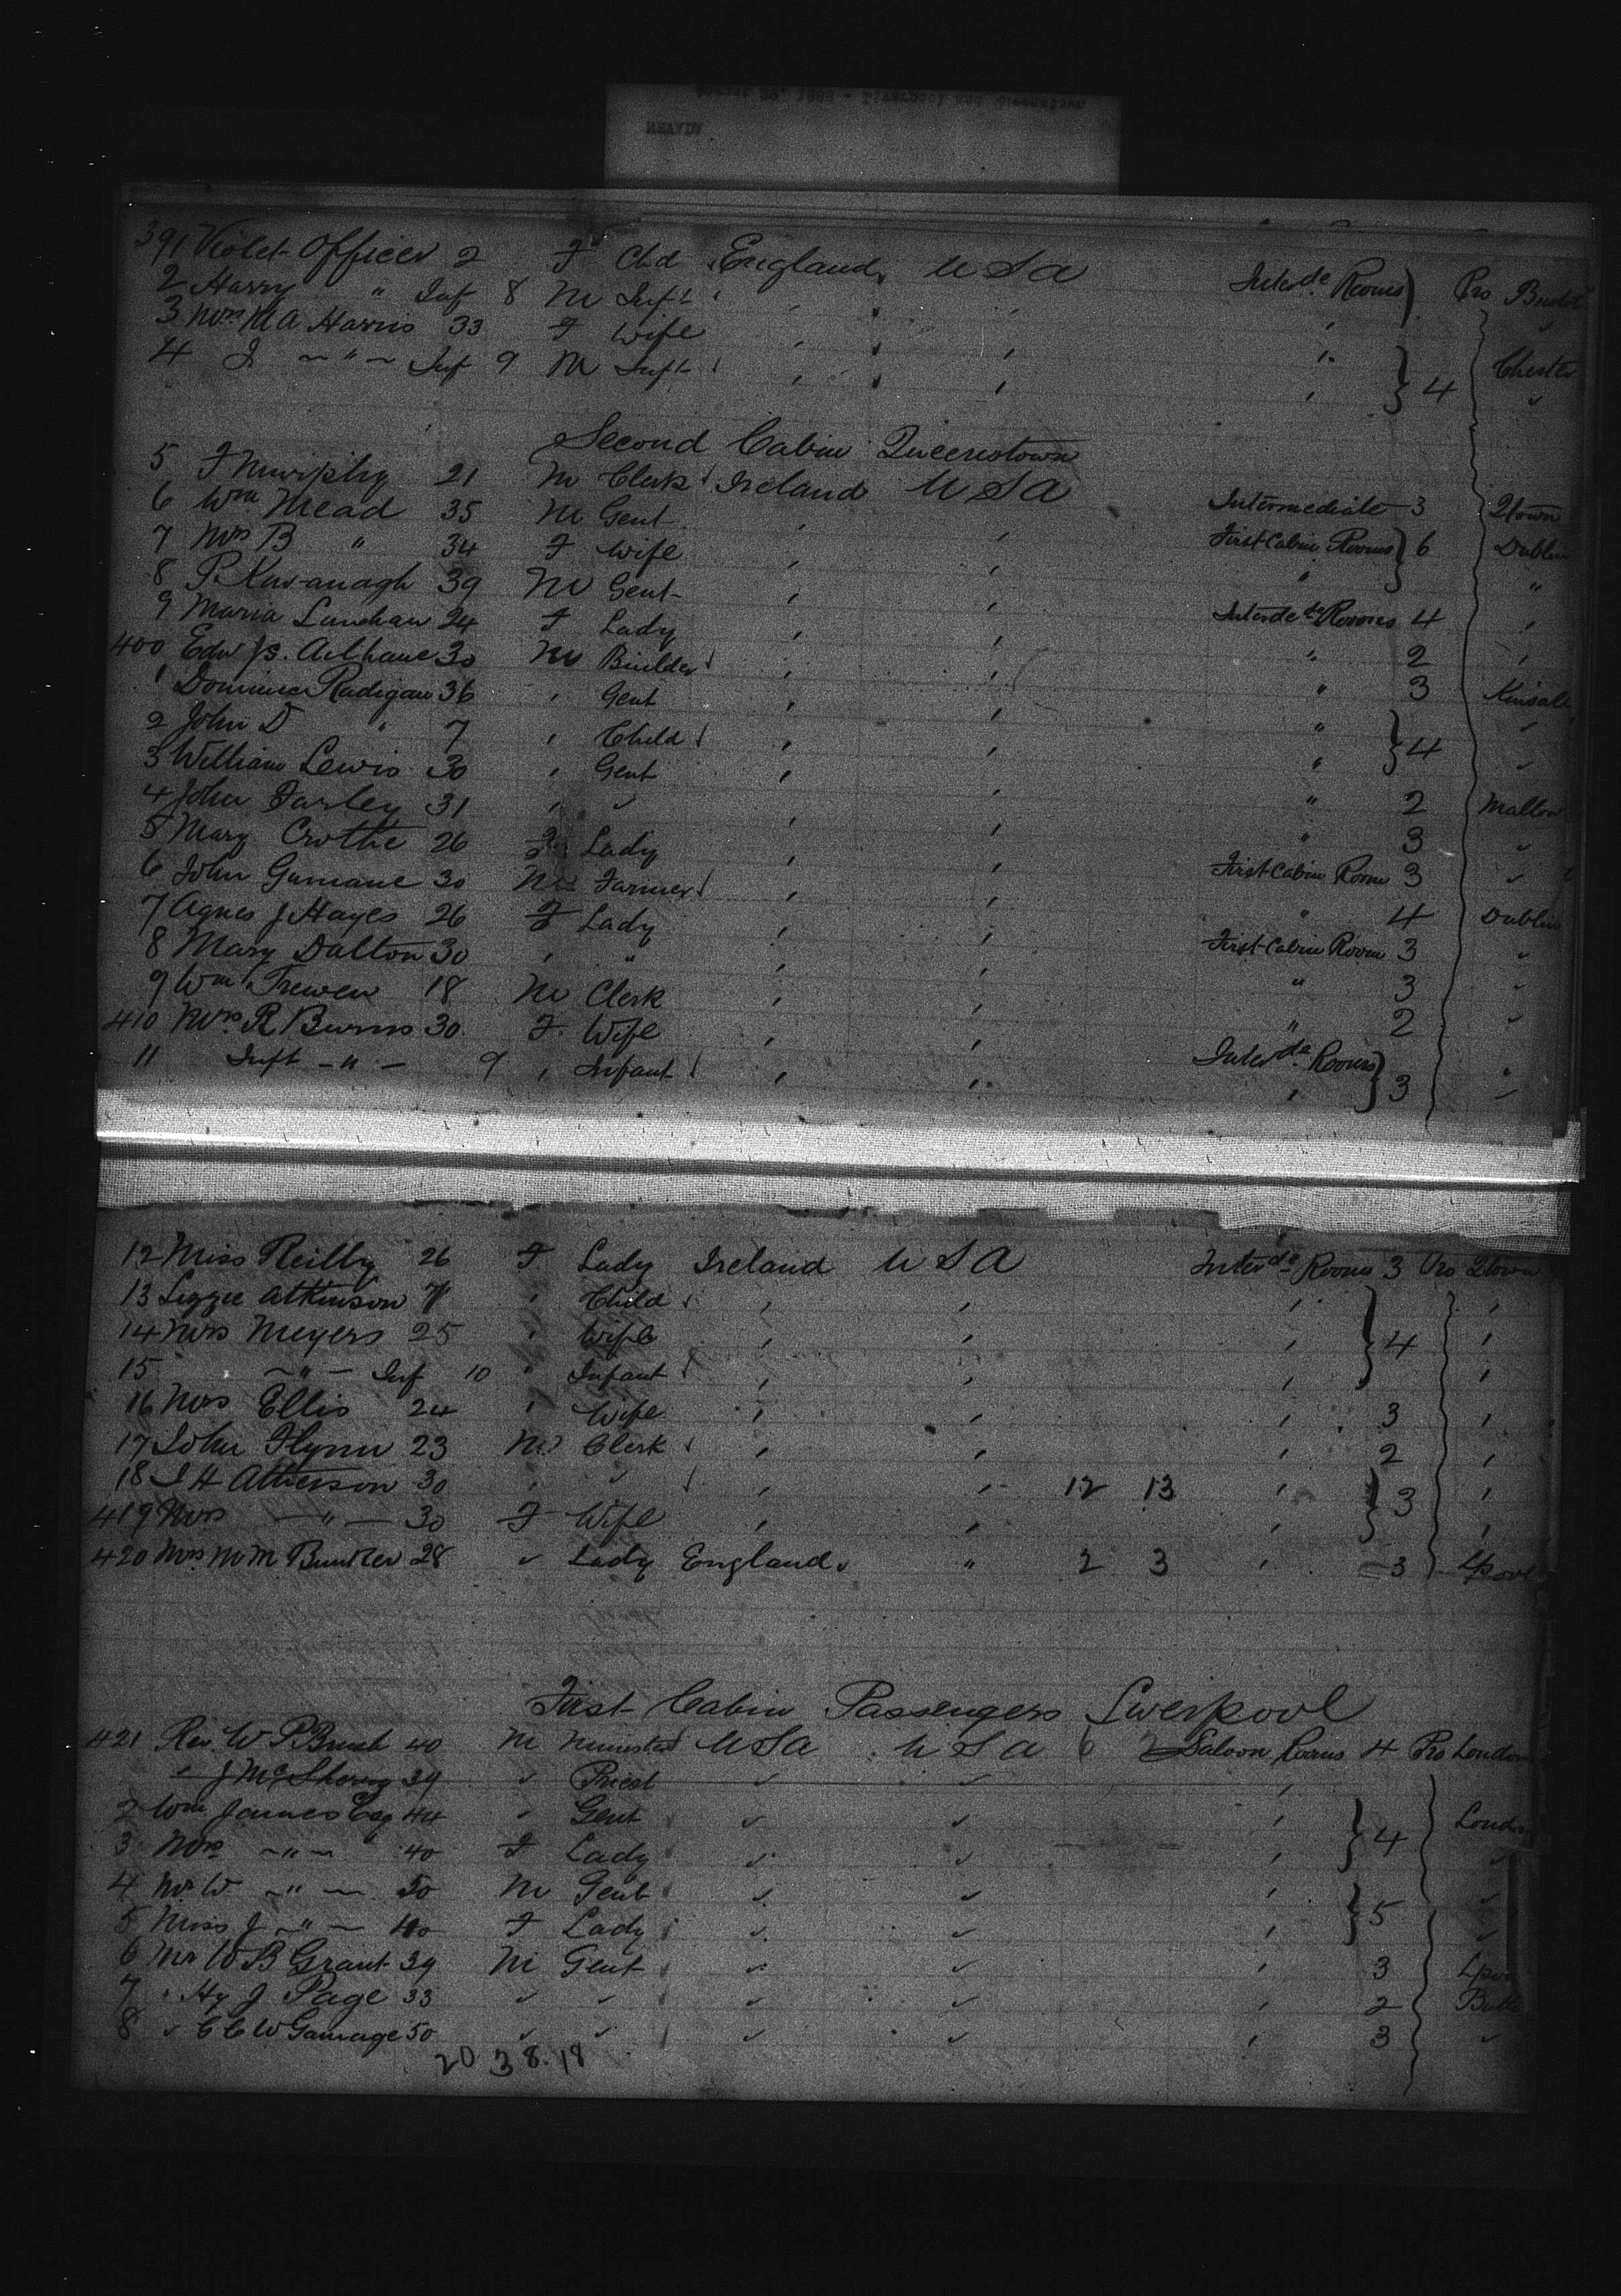 391 Violet Officer 2 F Chd England USA Interde Rooms Pro
2 Harry " Inf 8 M Inft
3 Mrs M A Harris 33 F Wife Chester
4 J " Inf 9 M Inft 4
Second Cabin Queenstown
5 J Murphy 21 M Clerk Ireland USA Intermediate 3 Qtown
6 Wm Mead 35 M Gent First Cabin Rooms 6 Dublin
7 Mrs B " 34 F Wife " "
8 P. Kavanagh 39 M Gent Interde Rooms 4
9 Maria 24 F Lady " 2
400 Edw Js. 30 M Builder " 3 Kinsale
1 Radigan 36 Gent "
2 John D " 7 Child " 4
3 William Lewis 30 Gent " 2 Mallow
4 John Farley 31 " 3
5 Mary 26 F Lady First Cabin Room 3
6 John 30 M Farmer " 4 Dublin
7 Agnes J Hayes 26 F Lady First Cabin Room 3
8 Mary Dalton 30 " " 3
9 Wm Trewen 18 M Clerk " 2
410 Mrs R Burns 30 F Wife Interde Rooms
11 Inft " 9 Infant 3
12 Miss Reilly 26 F Lady Ireland USA Interde Rooms 3 Pro Qtown
13 Lizzie Atkinson 7 Child
14 Mrs Meyers 25 Wife 4
15 " Inf 10 Infant
16 Mrs Ellis 24 Wife 3
17 John Flynn 23 M Clerk 2
18 J H Atherson 30 12 13 3
419 Mrs " 30 F Wife
420 Mrs M M 28 Lady England " 2 3 3 Lpool
First Cabin Passengers Liverpool
421 Rev. W P Brush 40 M Minister USA USA 6 2 Saloon Rooms 4 Pro London
" J McSherry 39 Priest
2 Wm James Esq 44 Gent 4 London
3 Mrs " 40 F Lady
4 Mr W " M Gent 5
5 Miss J " F Lady
6 Mr W B Grant 39 M Gent 3
7 " Hy J Page 33 2
8 C C W Gamage 50 3
20 38.18